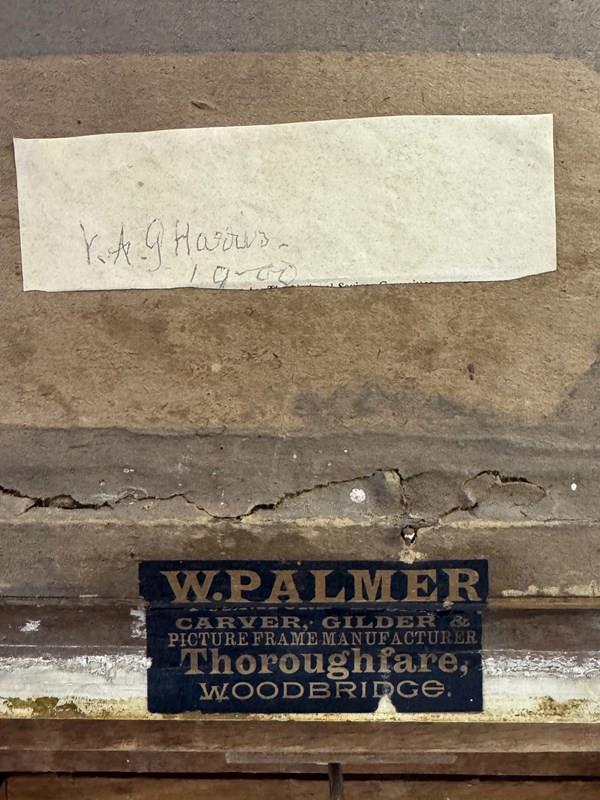 V. A. G Harris.
19-00
W. PALMER
CARVER, GILDER &
PICTURE FRAME MANUFACTURER
Thoroughfare,
WOODBRIDGE.